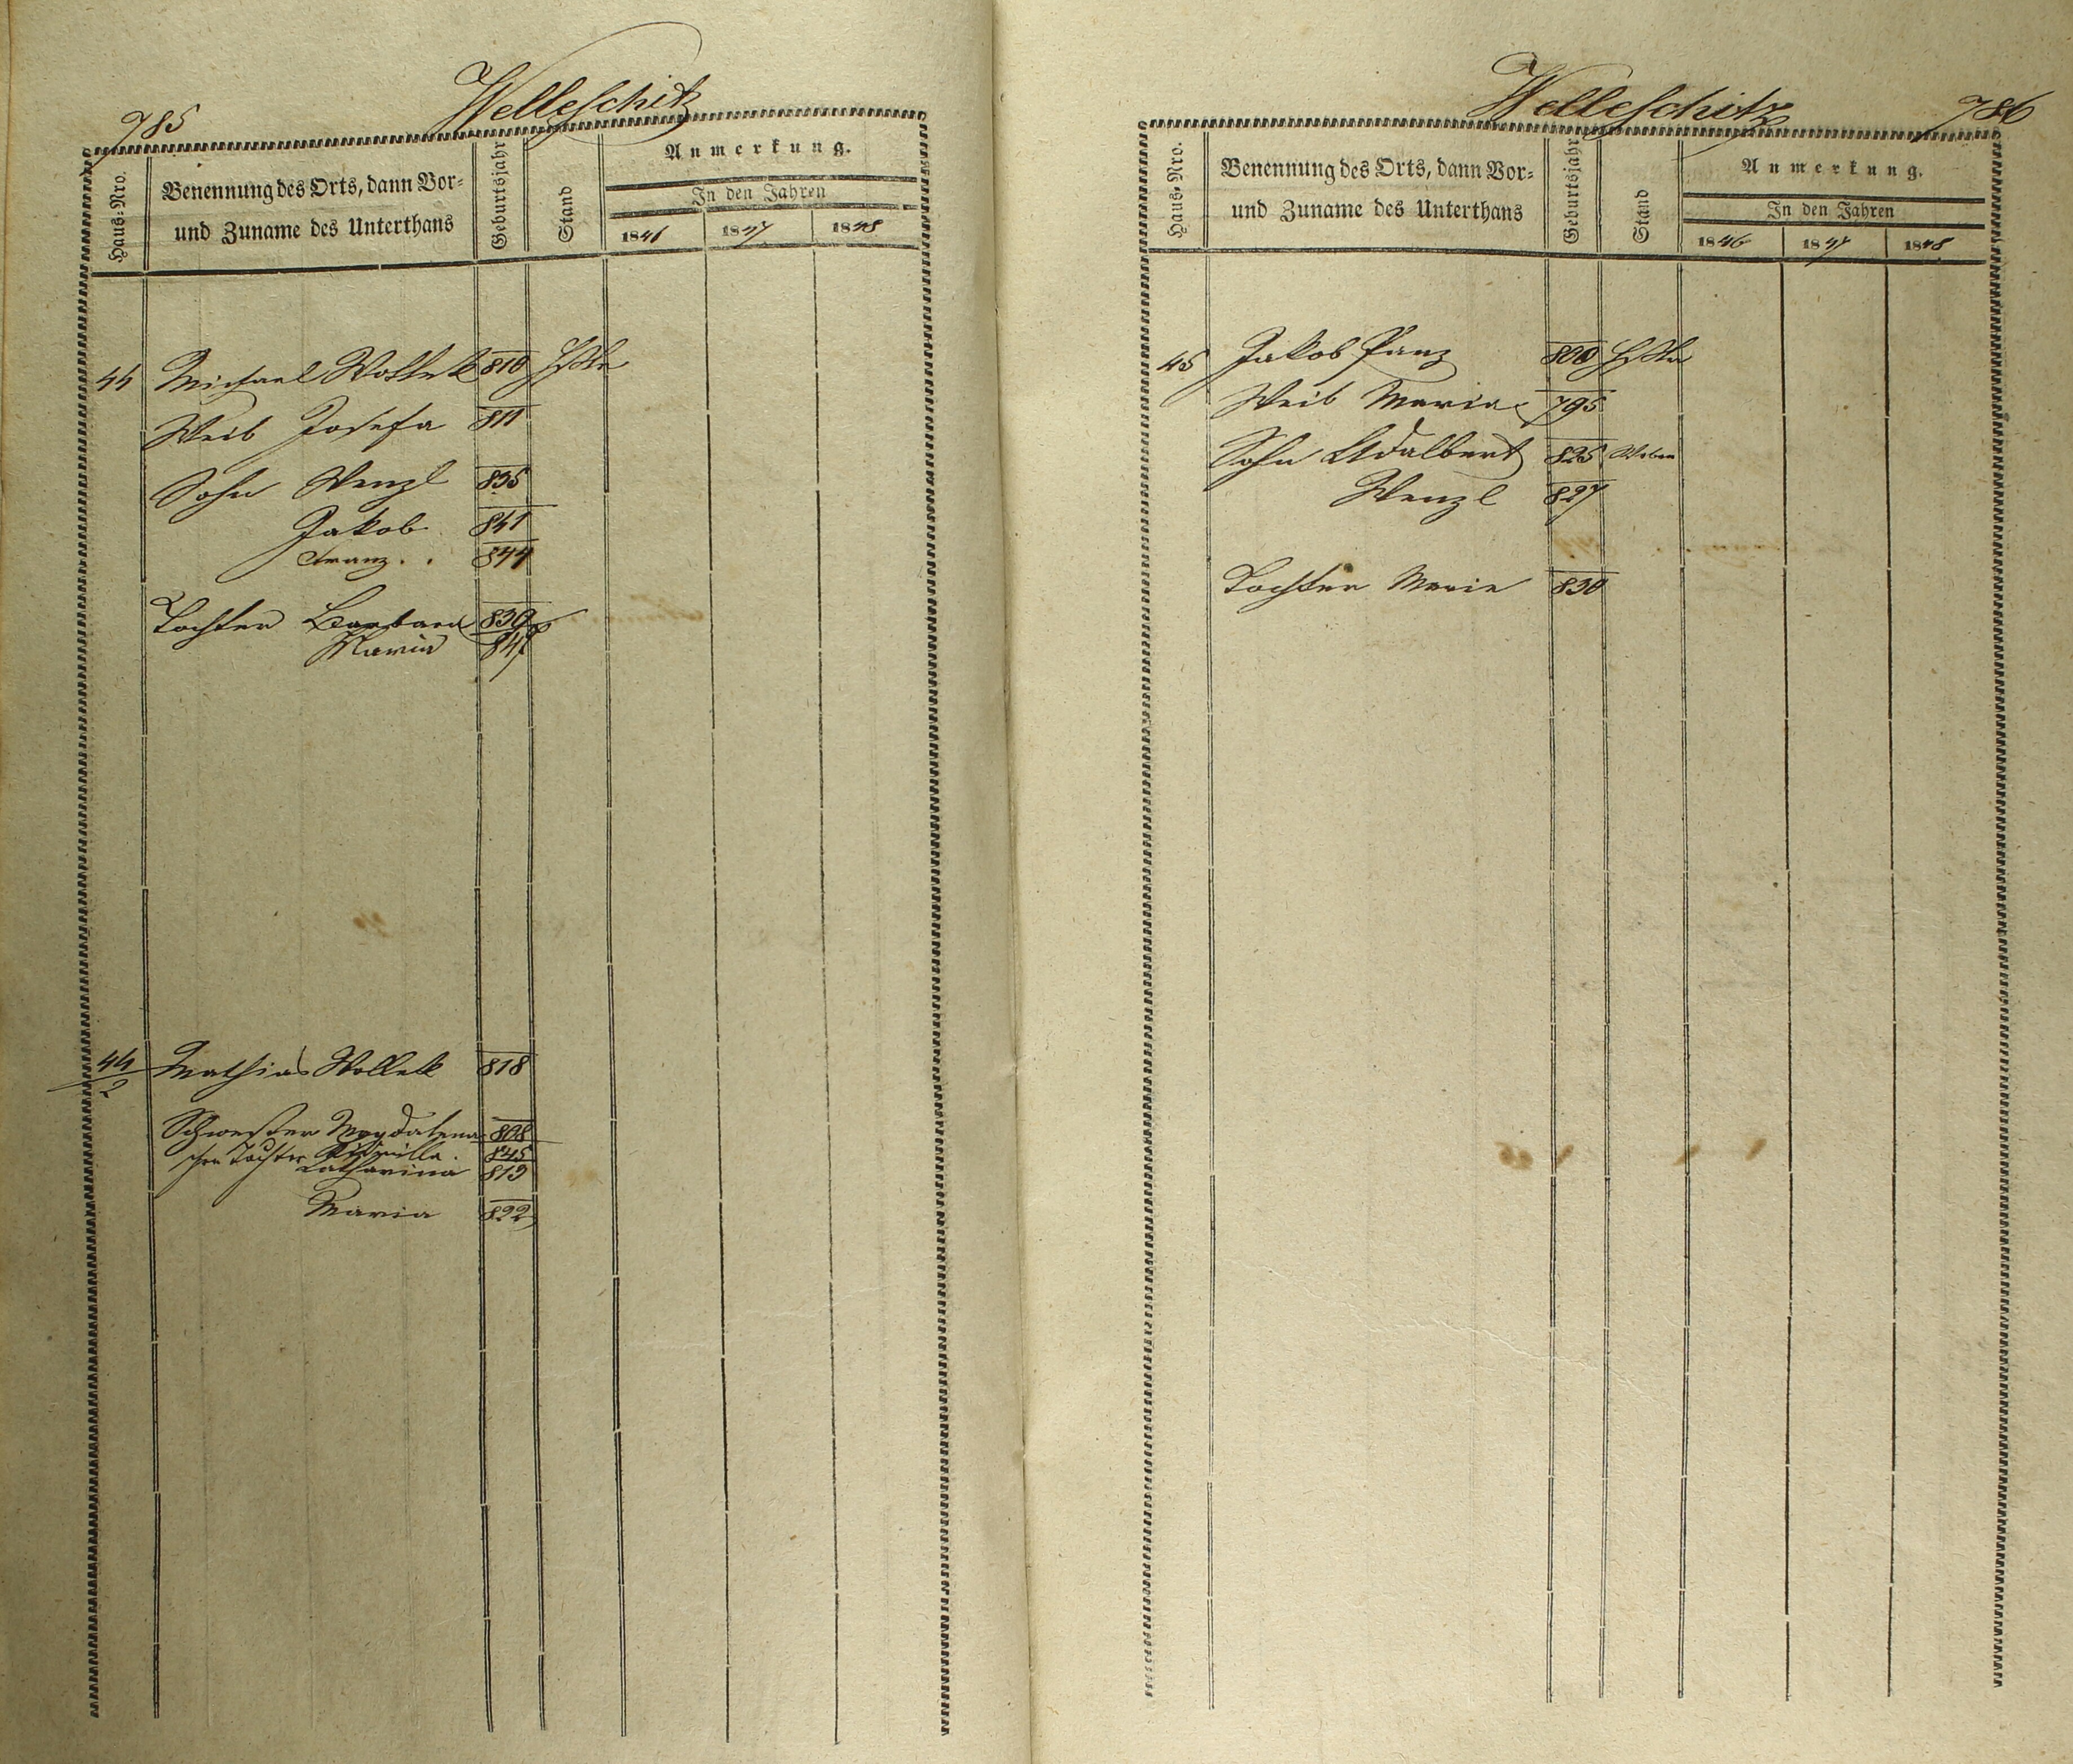 785
Welleschitz
Haus-Nro.
Benennung des Orts, dann Vor-
und Zuname des Unterthans
Geburtsjahr
Stand
Anmerkung.
In den Jahren
1846 1847 1848
44 Michael 810
Weib Josefa 811
Sohn Wenzl 835
Jakob 841
Franz . . 844
Tochter Barbara 839
Maria 847
44/2 Mathias 818
Schwester Magdalena 808
Tochter 845
Katharina 813
Maria 822
Welleschitz
786
Haus-Nro.
Benennung des Orts, dann Vor-
und Zuname des Unterthans
Geburtsjahr
Stand
Anmerkung.
In den Jahren
1846 1847 1848
45 Jakob 800
Weib Maria 795
Sohn Adalbert 825 Weber
Wenzl 827
Tochter Maria 830